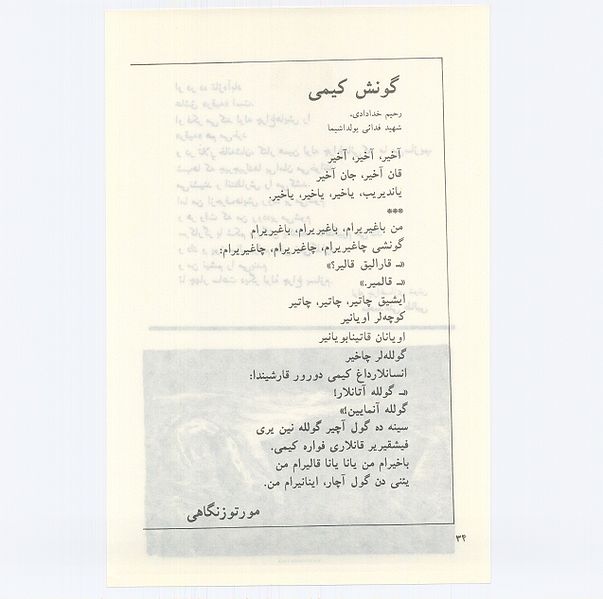 گونش کیمی
رحیم خدادادی،
شهید فدائی یولداشیما
آخیر، آخیر، آخیر
قان آخیر، جان آخیر
یاندیریب، یاخیر، یاخیر، یاخیر.
***
من باغیریرام، باغیریرام، باغیریرام
گونشی چاغیریرام، چاغیریرام، چاغیریرام:
«ـ قارالیق قالیر؟»
«ـ قالمیر.»
ایشیق چاتیر، چاتیر، چاتیر
کوچه‌لر اویانیر
اویانان قاتینابویانیر
گولله‌لر چاخیر
انسانلارداغ کیمی دورور قارشیندا:
«ـ گولله آتانلار!
گولله آتمایین!»
سینه ده گول آچیر گولله نین یری
فیشقیریر قانلاری فواره کیمی.
باخیرام من یانا یانا قالیرام من
یئنی دن گول آچار، اینانیرام من.
مورتوزنگاهی
۳۴